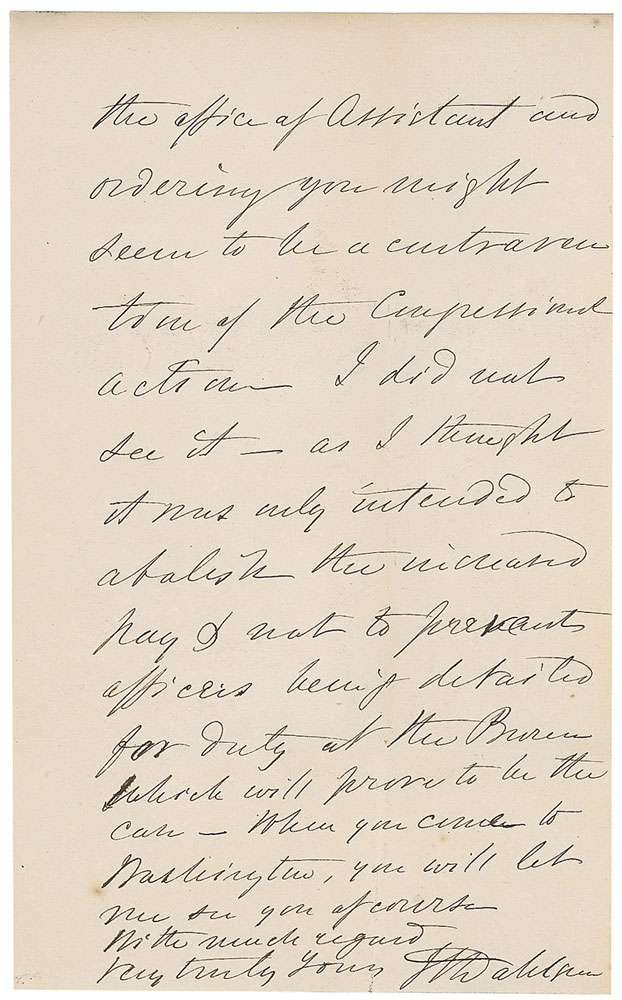 the office of Assistant and
ordering you might
seem to be a contraven
tion of the Congressional
action I did not
see it — as I thought
it was only intended to
abolish the increased
pay & not to prevent
officers being detailed
for duty at the Bureau
which will prove to be the
case — When you come to
Washington, you will let
me see you of course
With much regard
Very truly Yours JADahlgren